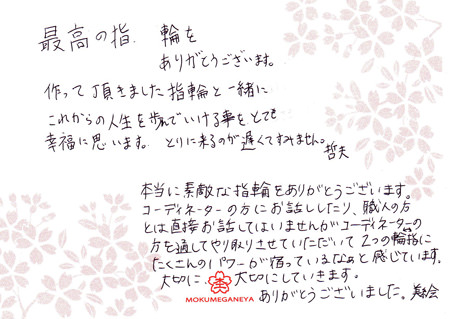 最高の指輪を
ありがとうございます。
作って頂きました指輪と一緒に
これからの人生を歩んでいける事をとても
幸福に思います。とりに来るのが遅くてすみません。
哲夫
本当に素敵な指輪をありがとうございます。
コーディネーターの方にお話ししたり、職人の方
とは直接お話してはいませんがコーディネーターの
方を通してやり取りさせていただいて2つの輪指に
たくさんのパワーが宿っているなぁと感じています。
大切に、大切にしていきます。
ありがとうございました。
MOKUMEGANEYA